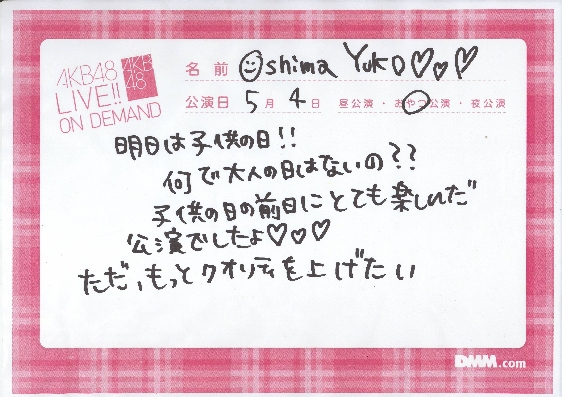 AKB48
LIVE!!
ON DEMAND
AKB
48
名前 ☺shima Yuko♡♡♡
公演日 5月4日 昼公演・おやつ公演・夜公演
明日は子供の日!!
何で大人の日はないの??
子供の日の前日にとても楽しんだ
公演でしたよ♡♡♡
ただ、もっとクオリティを上げたい
DMM.com